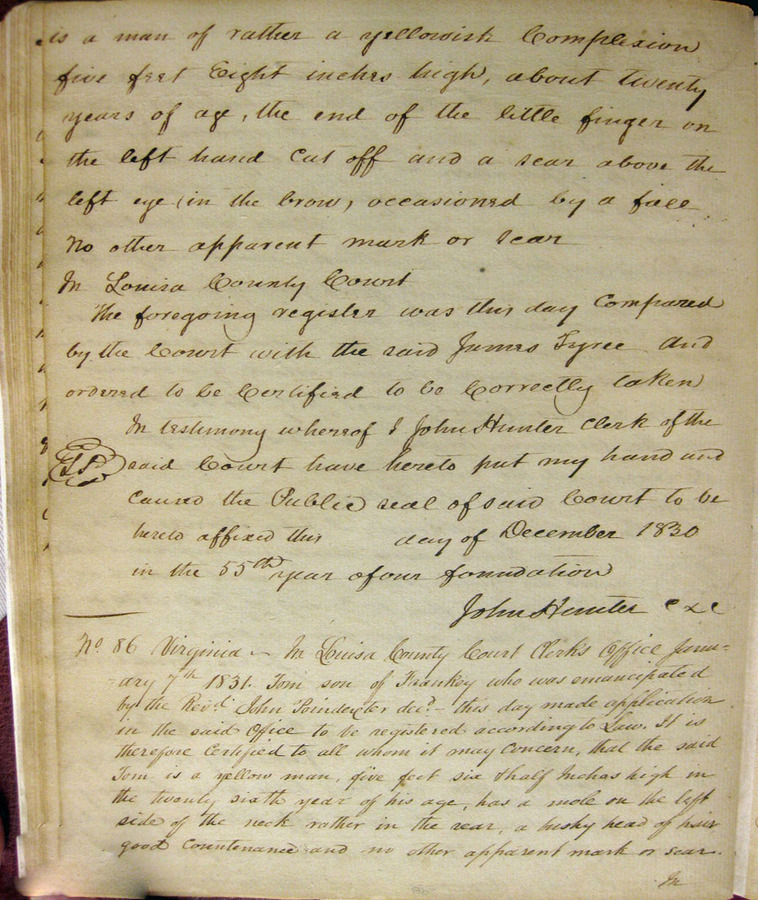 is a man of rather a yellowish Complexion
five feet Eight inches high, about twenty
years of age, the end of the little finger on
the left hand cut off and a scar above the
left eye (in the brow) occasioned by a fall
No other apparent mark or scar
In Louisa County Court
The foregoing register was this day Compared
by the Court with the said James Tyree and
ordered to be Certified to be Correctly taken
In testimony whereof I John Hunter Clerk of the
said Court have hereto put my hand and
caused the Public seal of said Court to be
hereto affixed this day of December 1830
in the 55th year of our foundation
John Hunter
No 86 Virginia - In Louisa County Court Clerk's Office Janu=
=ary 7th 1831. Tom son of Frankey who was emancipated
by the Revd. John Poindexter decd. - this day made application
in the said Office to be registered according to Law. It is
therefore Certified to all whom it may Concern, that the said
Tom is a yellow man, five feet six & half Inches high in
the twenty sixth year of his age, has a mole on the left
side of the neck rather in the rear, a bushy head of hair
good Countenance and no other apparent mark or scar.
In